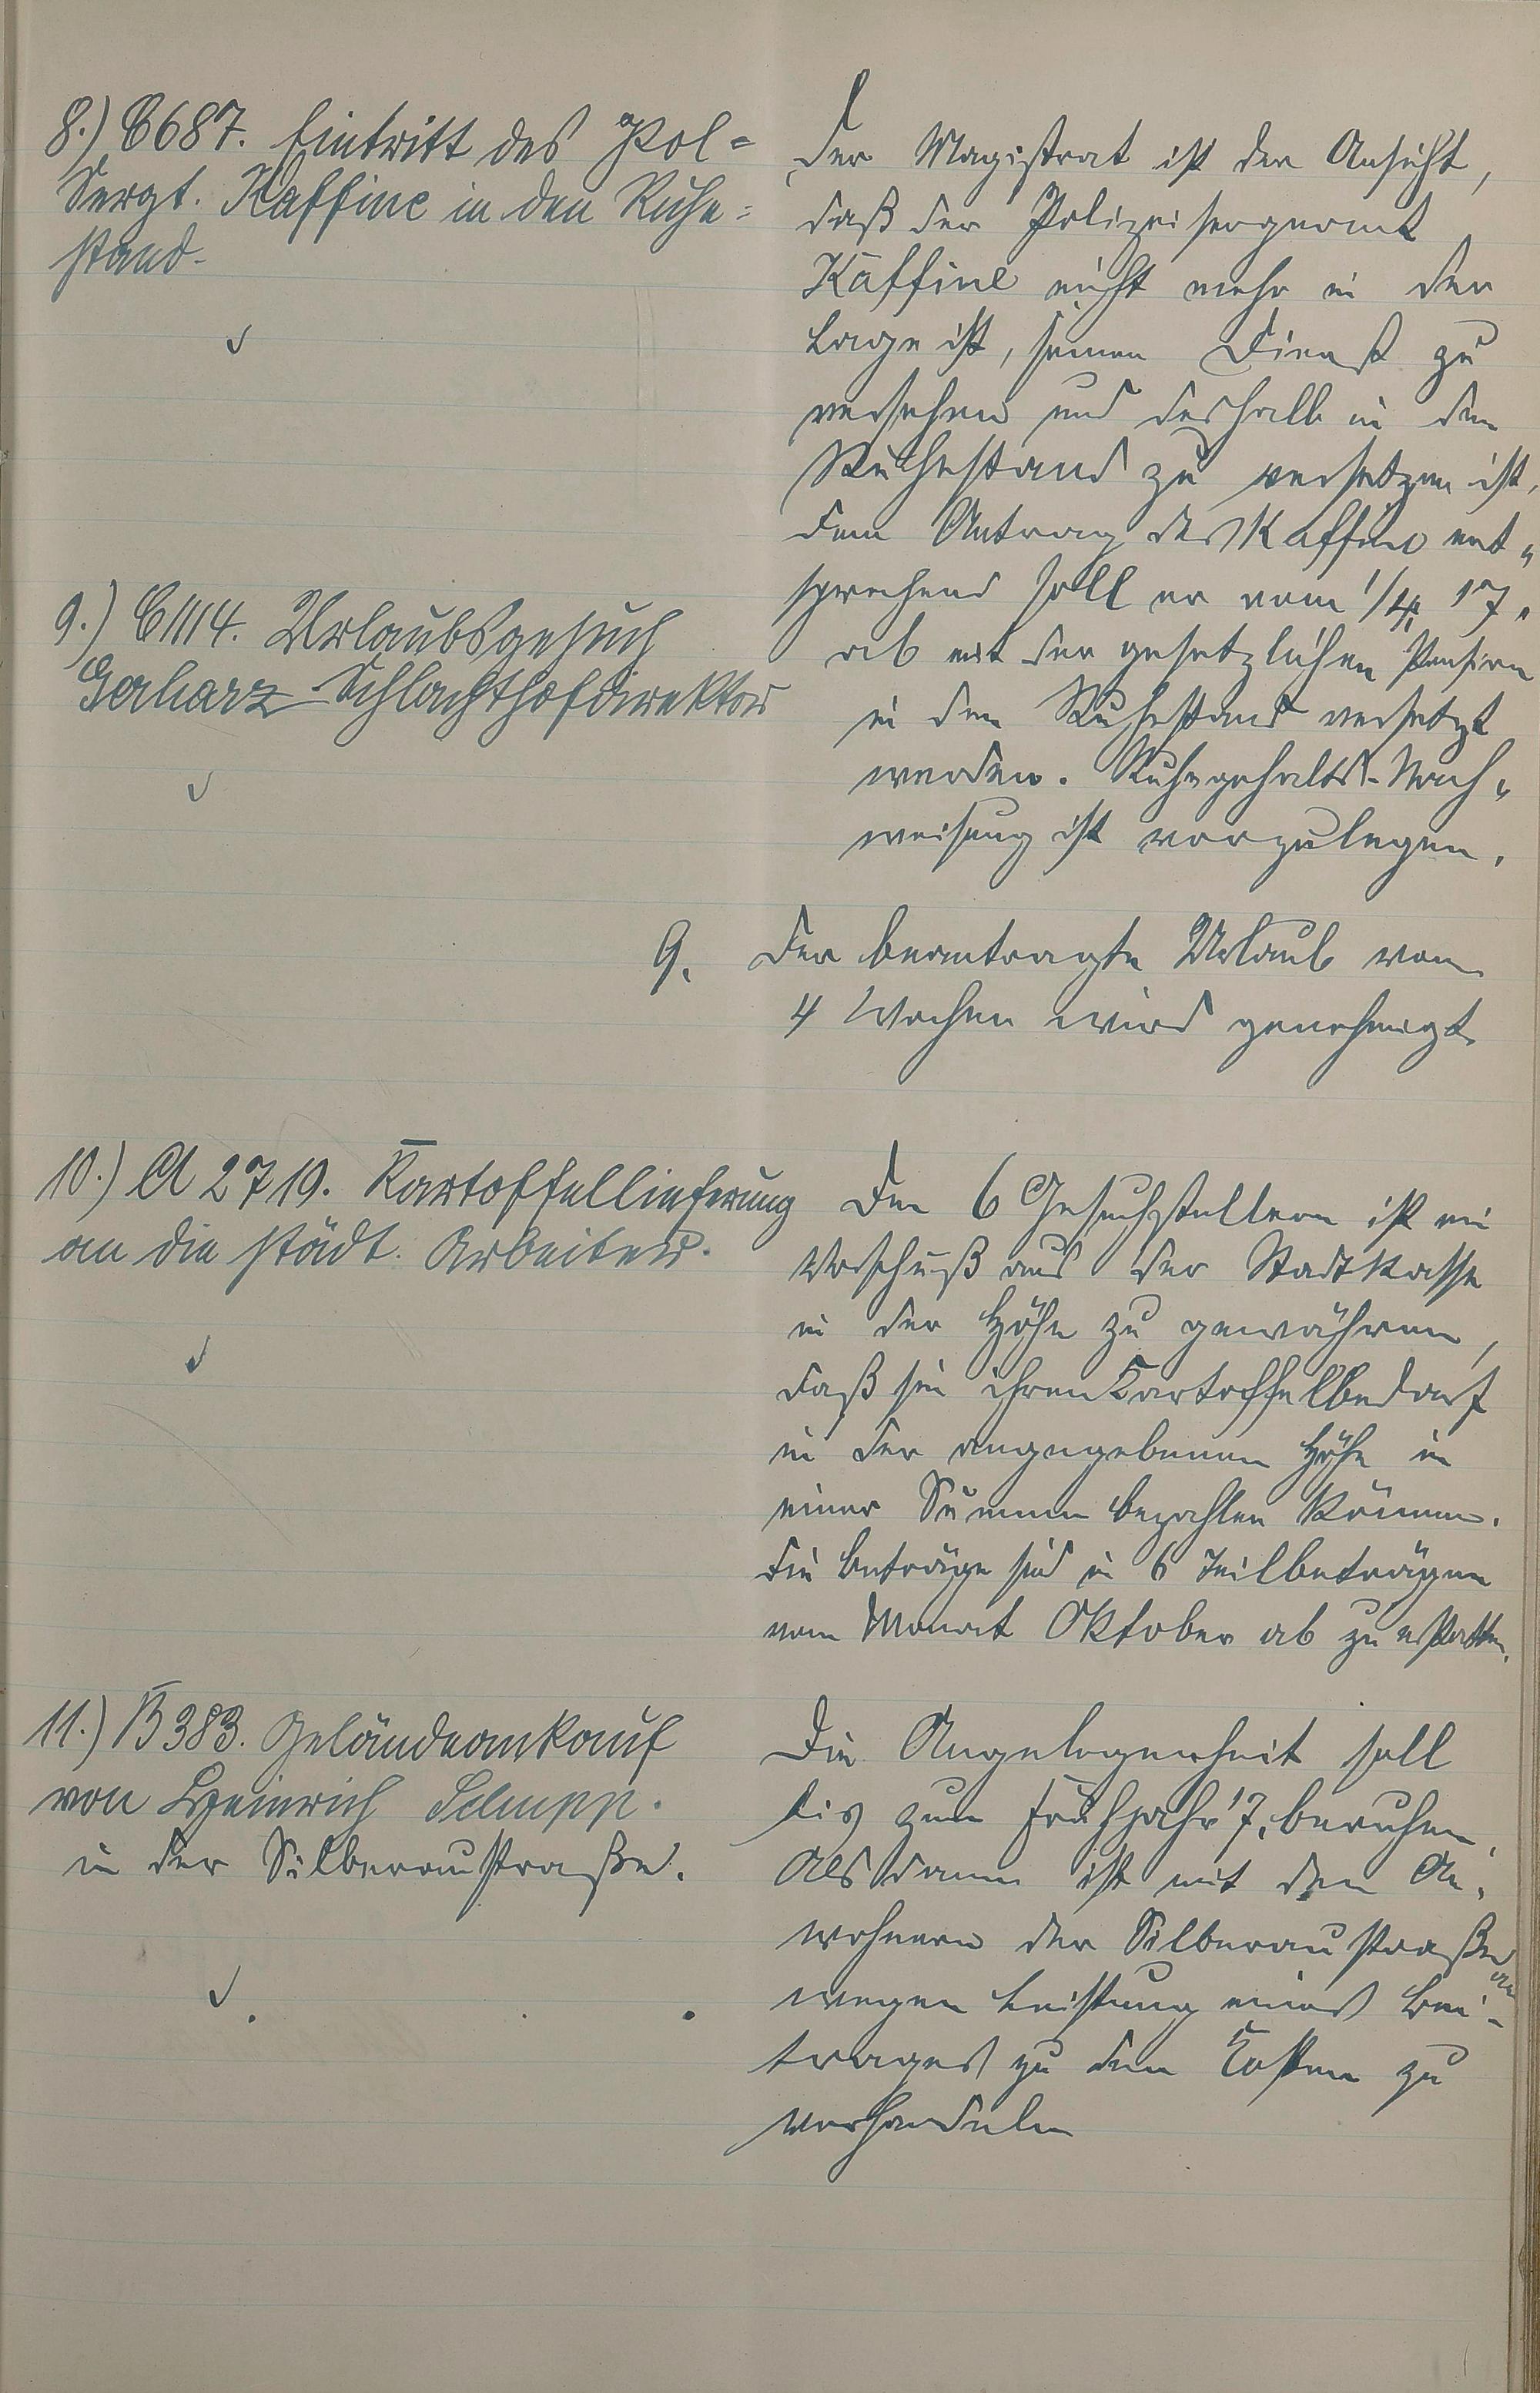 8.) C 687. Eintritt des Pol-
Sergt. Kaffine in den Ruhe-
stand.
Der Magistrat ist der Ansicht,
daß der Polizeisergeant
Kaffine nicht mehr in der
Lage ist, seinen Dienst zu
versehen und deshalb in den
Ruhestand zu versetzen ist.
Dem Antrag des Kaffine ent-
sprechend soll er vom 1/4. 17.
ab mit der gesetzlichen Pension
in den Ruhestand versetzt
werden. Ruhegehalts-Nach-
weisung ist vorzulegen.
9.) C 1114. Urlaubsgesuch
Gerharz Schlachthofdirektor
9. Der beantragte Urlaub von
4 Wochen wird genehmigt.
10.) A 2719. Kartoffellieferung
an die städt. Arbeiter.
Den 6 Gesuchstellern ist ein
Vorschuß aus der Stadtkasse
in der Höhe zu gewähren,
daß sie ihren Kartoffelbedarf
in der angegebenen Höhe in
einer Summe bezahlen können.
Die Beträge sind in 6 Teilbeträgen
vom Monat Oktober ab zu erstatten.
11.) B 383. Geländeankauf
von Heinrich
in der Silberaustraße.
Die Angelegenheit soll
bis zum Frühjahr 17. beruhen.
Alsdann ist mit den An-
wohnern der Silberaustraße
wegen Leistung eines Bei-
trages zu den Kosten zu
verhandeln